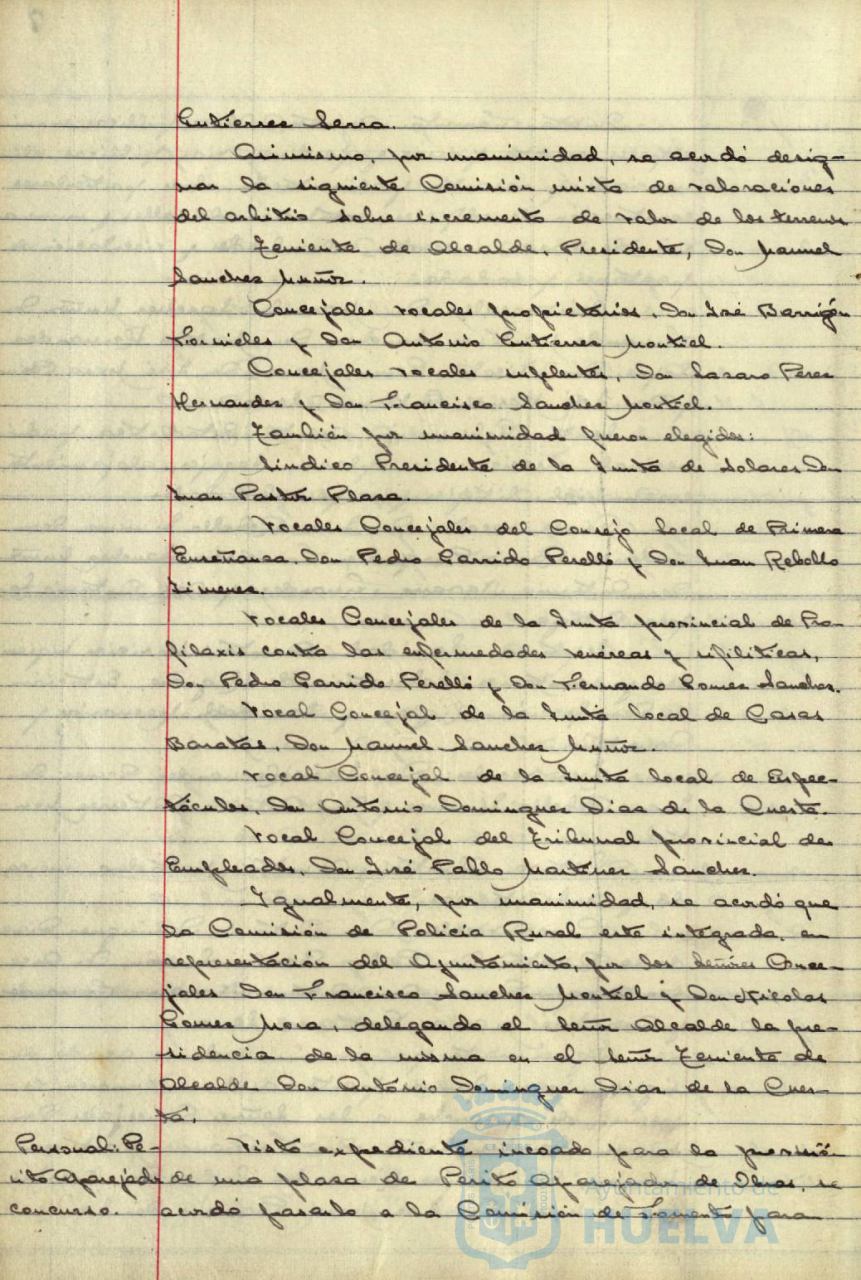 Gutierrez Serra.
Asimismo, por unanimidad, se acordó desig-
nar la siguiente Comisión mixta de valoraciones
del arbitrio sobre incremento de valor de los terrenos
Teniente de Alcalde, Presidente, Don Manuel
Sanchez Muñoz.
Concejales vocales propietarios, Don José Barrigón
Fornieles y Don Antonio Gutierrez Montiel.
Concejales vocales suplentes, Don Lazaro Perez
Hernandez y Don Francisco Sanchez Montiel.
También por unanimidad fueron elegidos:
Síndico Presidente de la Junta de Solares Don
Juan Pastor Plaza.
Vocales Concejales del Consejo local de Primera
Enseñanza, Don Pedro Garrido Perelló y Don Juan Rebollo
Jimenez.
Vocales Concejales de la Junta provincial de Pro-
filaxis contra las enfermedades venéreas y sifiliticas,
Don Pedro Garrido Perelló y Don Fernando Gomez Sanchez.
Vocal Concejal de la Junta local de Casas
Baratas, Don Manuel Sanchez Muñoz.
Vocal Concejal de la Junta local de Espec-
táculos, Don Antonio Dominguez Diaz de la Cuesta.
Vocal Concejal del Tribunal provincial de
Empleados, Don José Pablo Martinez Sanchez.
Igualmente, por unanimidad, se acordó que
la Comisión de Policia Rural este integrada, en
representación del Ayuntamiento, por los Señores Conce-
jales Don Francisco Sanchez Montiel y Don Nicolas
Gomez Mora, delegando el Señor Alcalde la pre-
sidencia de la misma en el Señor Teniente de
Alcalde Don Antonio Dominguez Diaz de la Cues-
ta.
Personal: Pe-
rito Aparejador
concurso.
Visto expediente incoado para la provisión
de una plaza de Perito Aparejador de Obras, se
acordó pasarlo a la Comisión de Fomento para
Ayuntamiento de
HUELVA